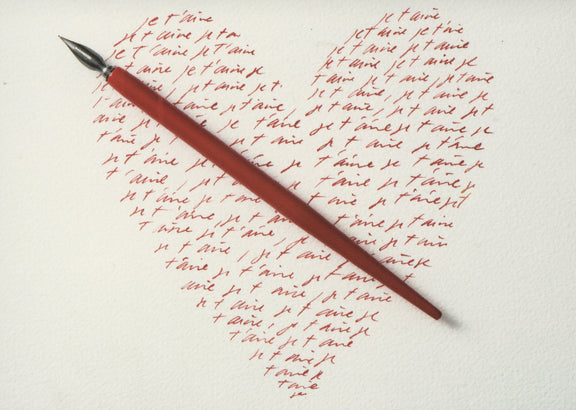 je t'aime je t'aime
je t'aime je t'aime je t'aime
je t'aime je t'aime je t'aime je t'aime
t'aime je t'aime je t'aime je t'aime je
je t'aime je t t'aime je t'aime, je t'aime
t'aime je t'aime, je t'aime, je t'aime je
aime je t'aime je t'aime je t'aime je t'aime je t
t'aime je t'aime je t'aime je t'aime je
je t'aime je t'aime je t'aime je t'aime je
t'aime, je t'aime je t'aime je t'aime je
je t'aime je t'aime je t'aime je
je t'aime, je t'aime je t'aime je t'aime
t'aime, je t'aime, je t'aime je t'aime
je t'aime, je t'aime je t'aime je
t'aime je t'aime, je t'aime t
je t'aime je t'aime, je t'aime
je t'aime je t'aime je
t'aime, je t'aime je
t'aime je t'aime
je t'aime je
t'aime je
t'aime
je